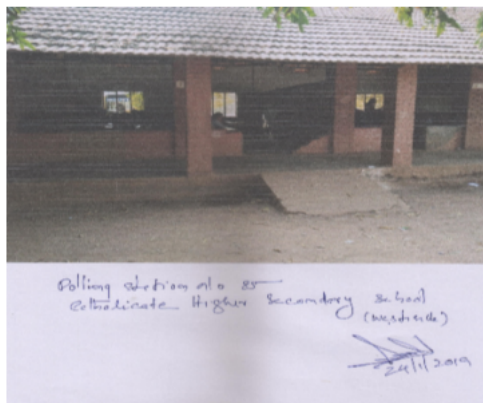 Polling station no 85
Catholicate Higher Secondary School
(west side)
24/1/2019